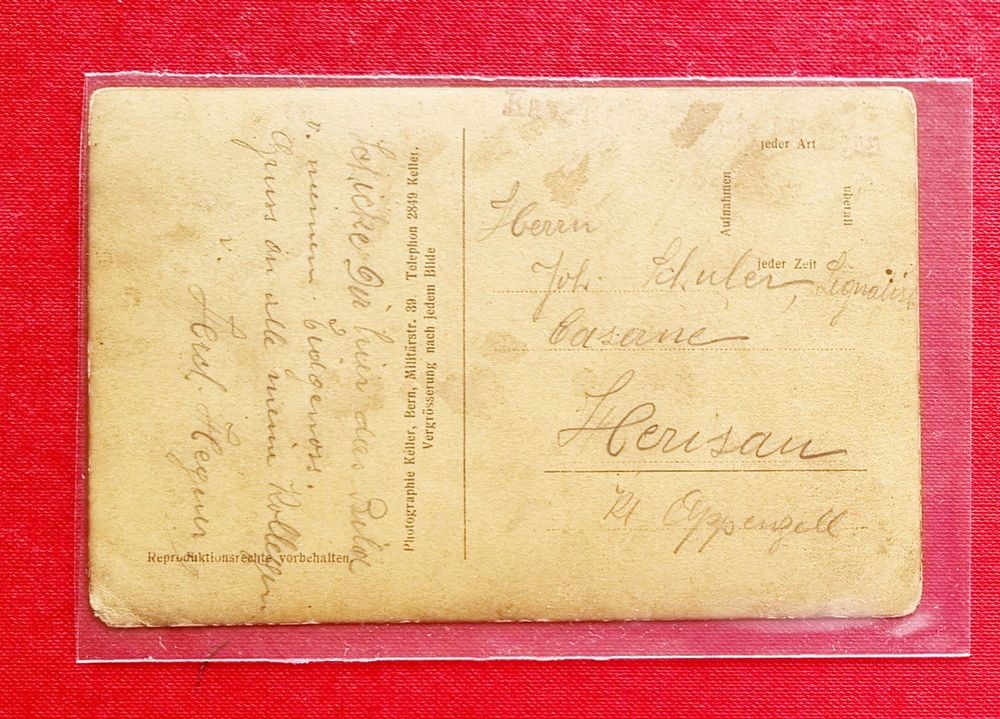 Schicke Dir hier das Bild
v. meinem Eidgenoss.
Gruss an alle meine Kollegen
v.
Ferd. Hegner
Photographie Keller, Bern, Militärstr. 39. Telephon 2849 Keller.
Vergrösserung nach jedem Bilde
Reproduktionsrechte vorbehalten.
jeder Art
Aufnahmen
überall
jeder Zeit
Herrn
Joh. Schuler,
Caserne
Herisau
Kt Appenzell